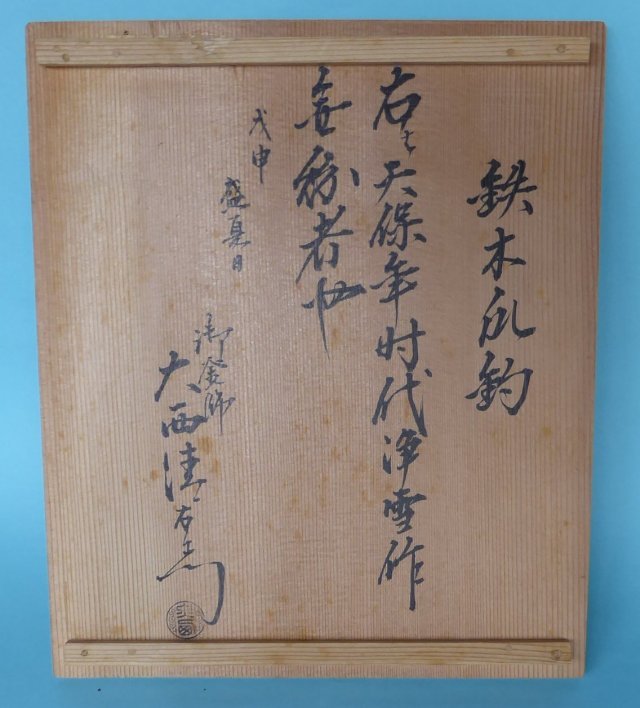 鉄木瓜釣
右天保年时代浄雪作
無紛者也
戊申
盛夏日
御釜師
大西清右衛門